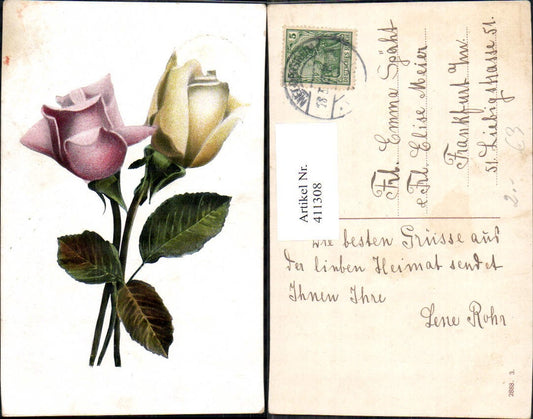 5
Artikel Nr.
411308
Frl. Emma Späht
e Frl. Elise Meier
Frankfurt
51. Liebigstrasse 51.
2.- 63
Die besten Grüsse aus
der lieben Heimat sendet
Ihnen Ihre
Lene Rohr
2888. 3.